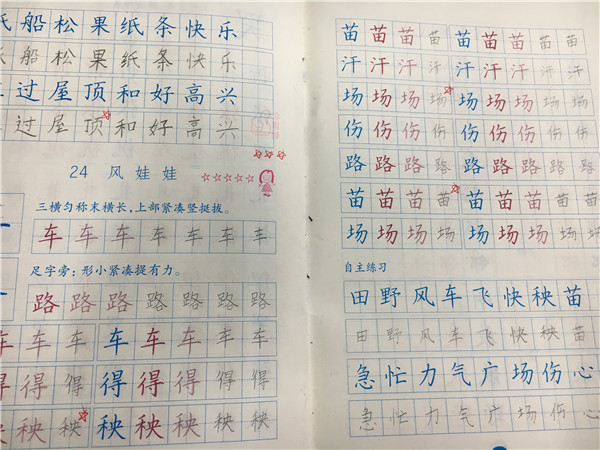 船松果纸条快乐
船松果纸条快乐
过屋顶和好高兴
过屋顶和好高兴
24 风娃娃
三横匀称末横长，上部紧凑竖挺拔。
车车车车车车车
足字旁：形小紧凑提有力。
路路路路路路路
车车车车车车车
得得得得得得得
秧秧秧秧秧秧秧
苗苗苗苗苗苗苗苗苗
汗汗汗汗汗汗汗汗汗
场场场场场场场场场
伤伤伤伤伤伤伤伤伤
路路路路路路路路路
苗苗苗苗苗苗苗苗苗
场场场场场场场场场
自主练习
田野风车飞快秧苗
田野风车飞快秧苗
急忙力气广场伤心
急忙力气广场伤心